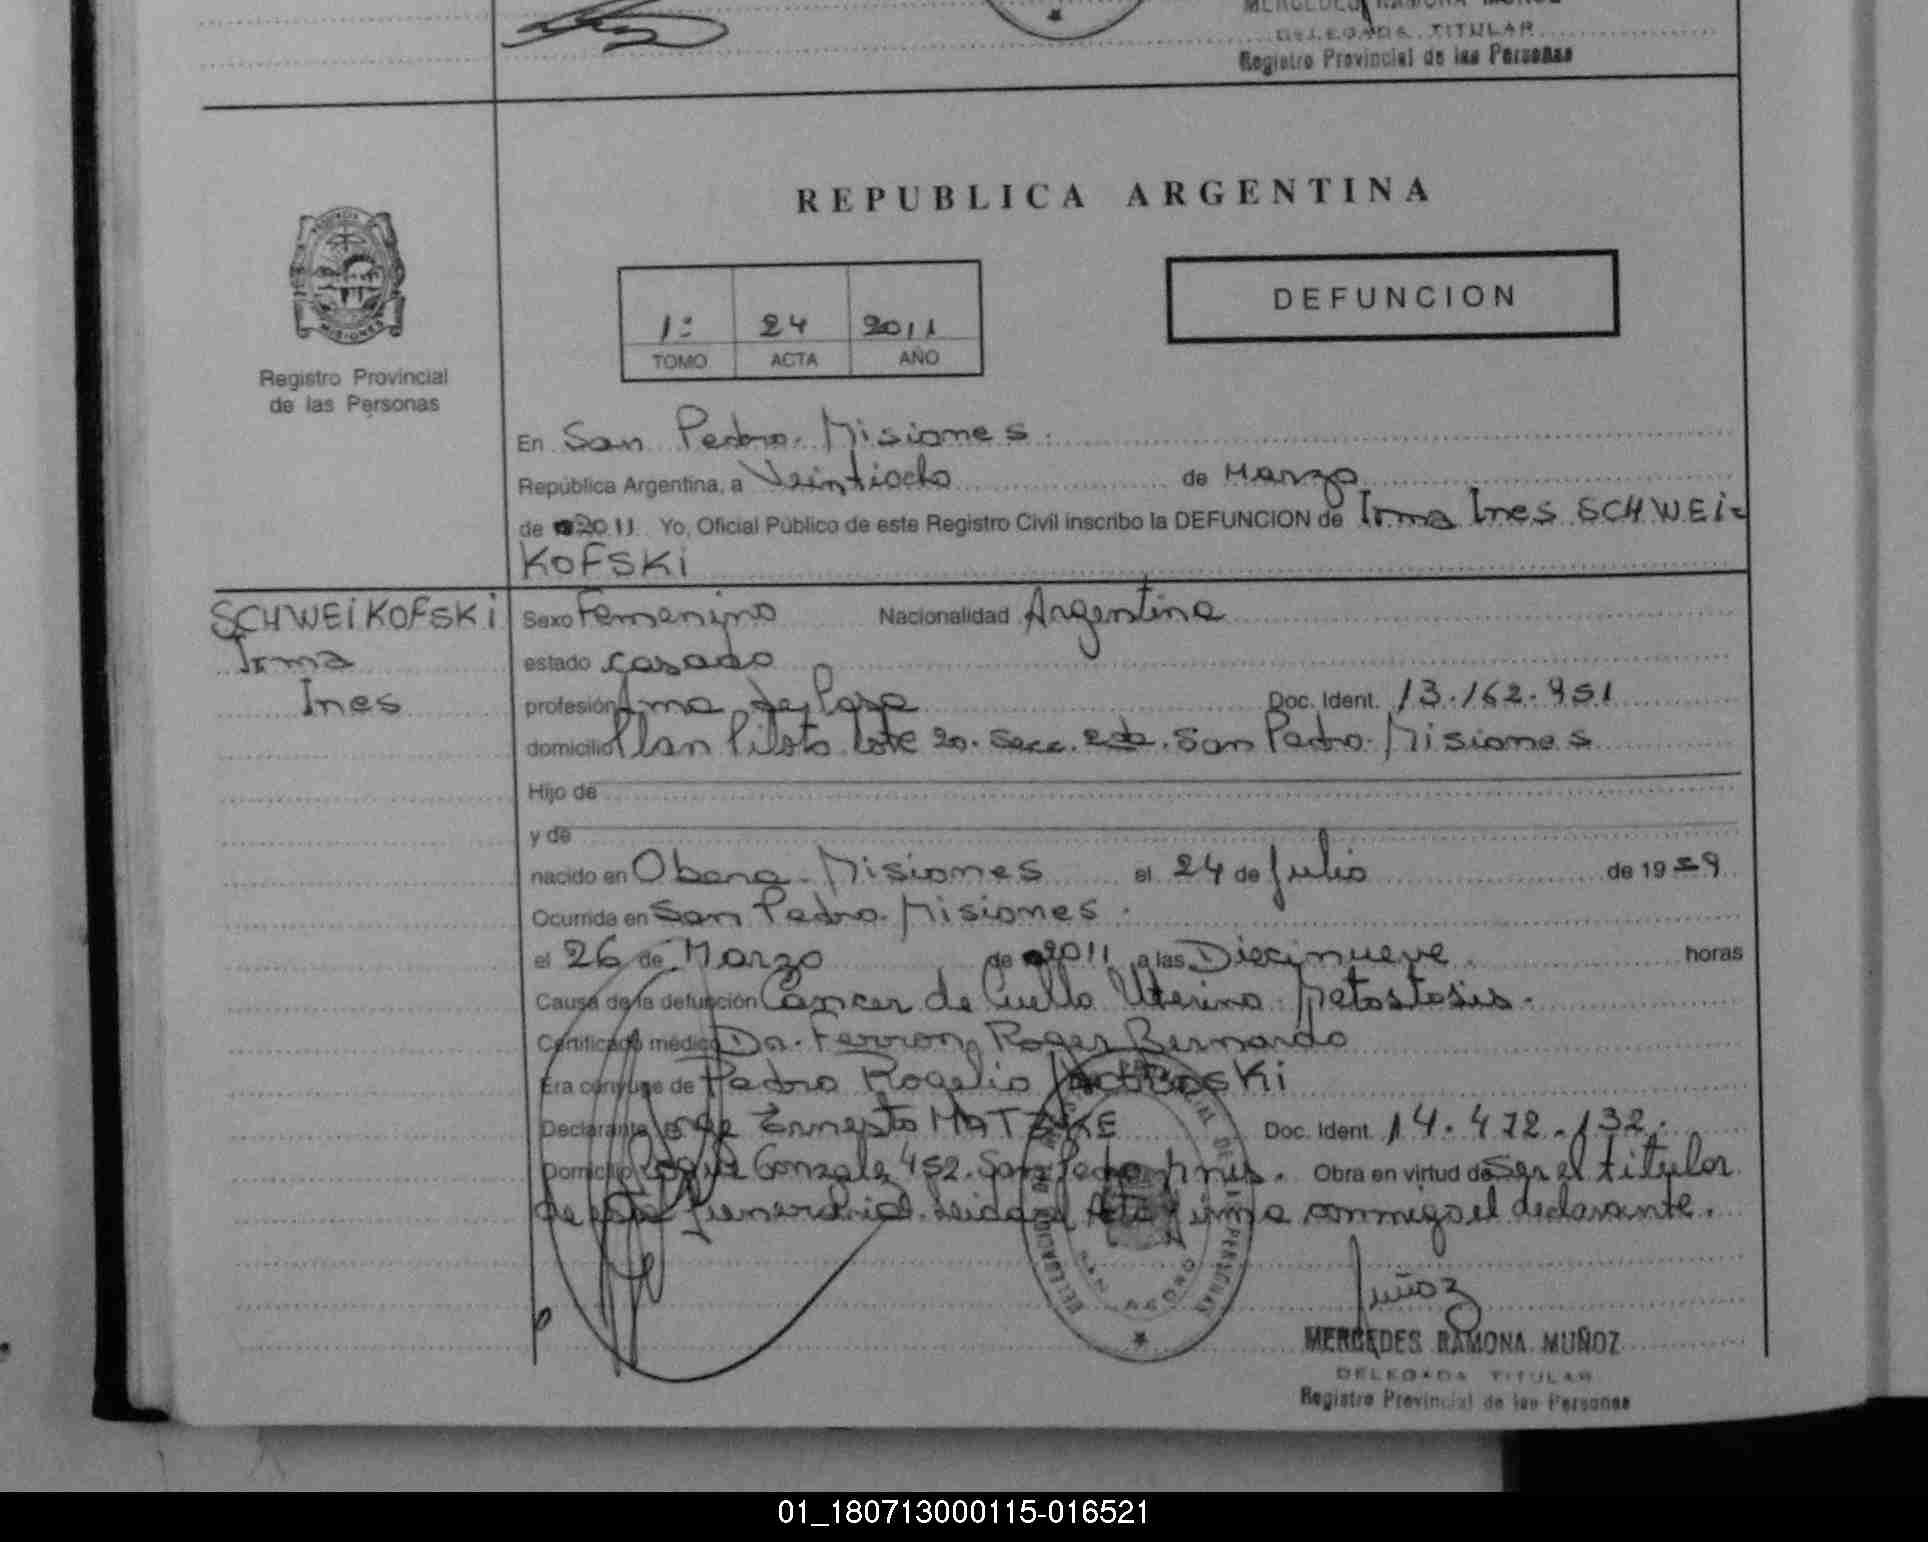 MERCEDES RAMONA MUÑOZ
DELEGADA TITULAR
Registro Provincial de las Personas
REPUBLICA ARGENTINA
PROVINCIA
MISIONES
Registro Provincial
de las Personas
1: 24 2011
TOMO ACTA AÑO
DEFUNCION
En San Pedro. Misiones.
República Argentina, a Veintiocho de Marzo
de 2011 Yo, Oficial Público de este Registro Civil inscribo la DEFUNCION de Irma Ines SCHWEI-
KOFSKI
SCHWEIKOFSKI
Irma
Ines
Sexo Femenino Nacionalidad Argentina
estado casado
profesión Ama de Casa Doc. Ident. 13.162.951
domicilio Plan Piloto lote 20. Secc. San Pedro. Misiones
Hijo de
y de
nacido en Obera. Misiones el 24 de Julio de 1959
Ocurrida en San Pedro. Misiones.
el 26 de Marzo de 2011 a las Diecinueve. horas
Causa de la defunción Cancer de Cuello Uterino. Metastasis.
Certificado médico Dr. Ferron Roger Bernardo
Era cónyuge de Pedro Rogelio
Declarante Jorge Ernesto MATZKE Doc. Ident. 14.472.132.
Domicilio Roque Gonzalez 452. San Pedro Mnes. Obra en virtud de Ser el titular
de la funeraria. leida el Acta firma conmigo el declarante.
DELEGACION SAN PEDRO
Muñoz
MERCEDES RAMONA MUÑOZ
DELEGADA TITULAR
Registro Provincial de las Personas
01_180713000115-016521